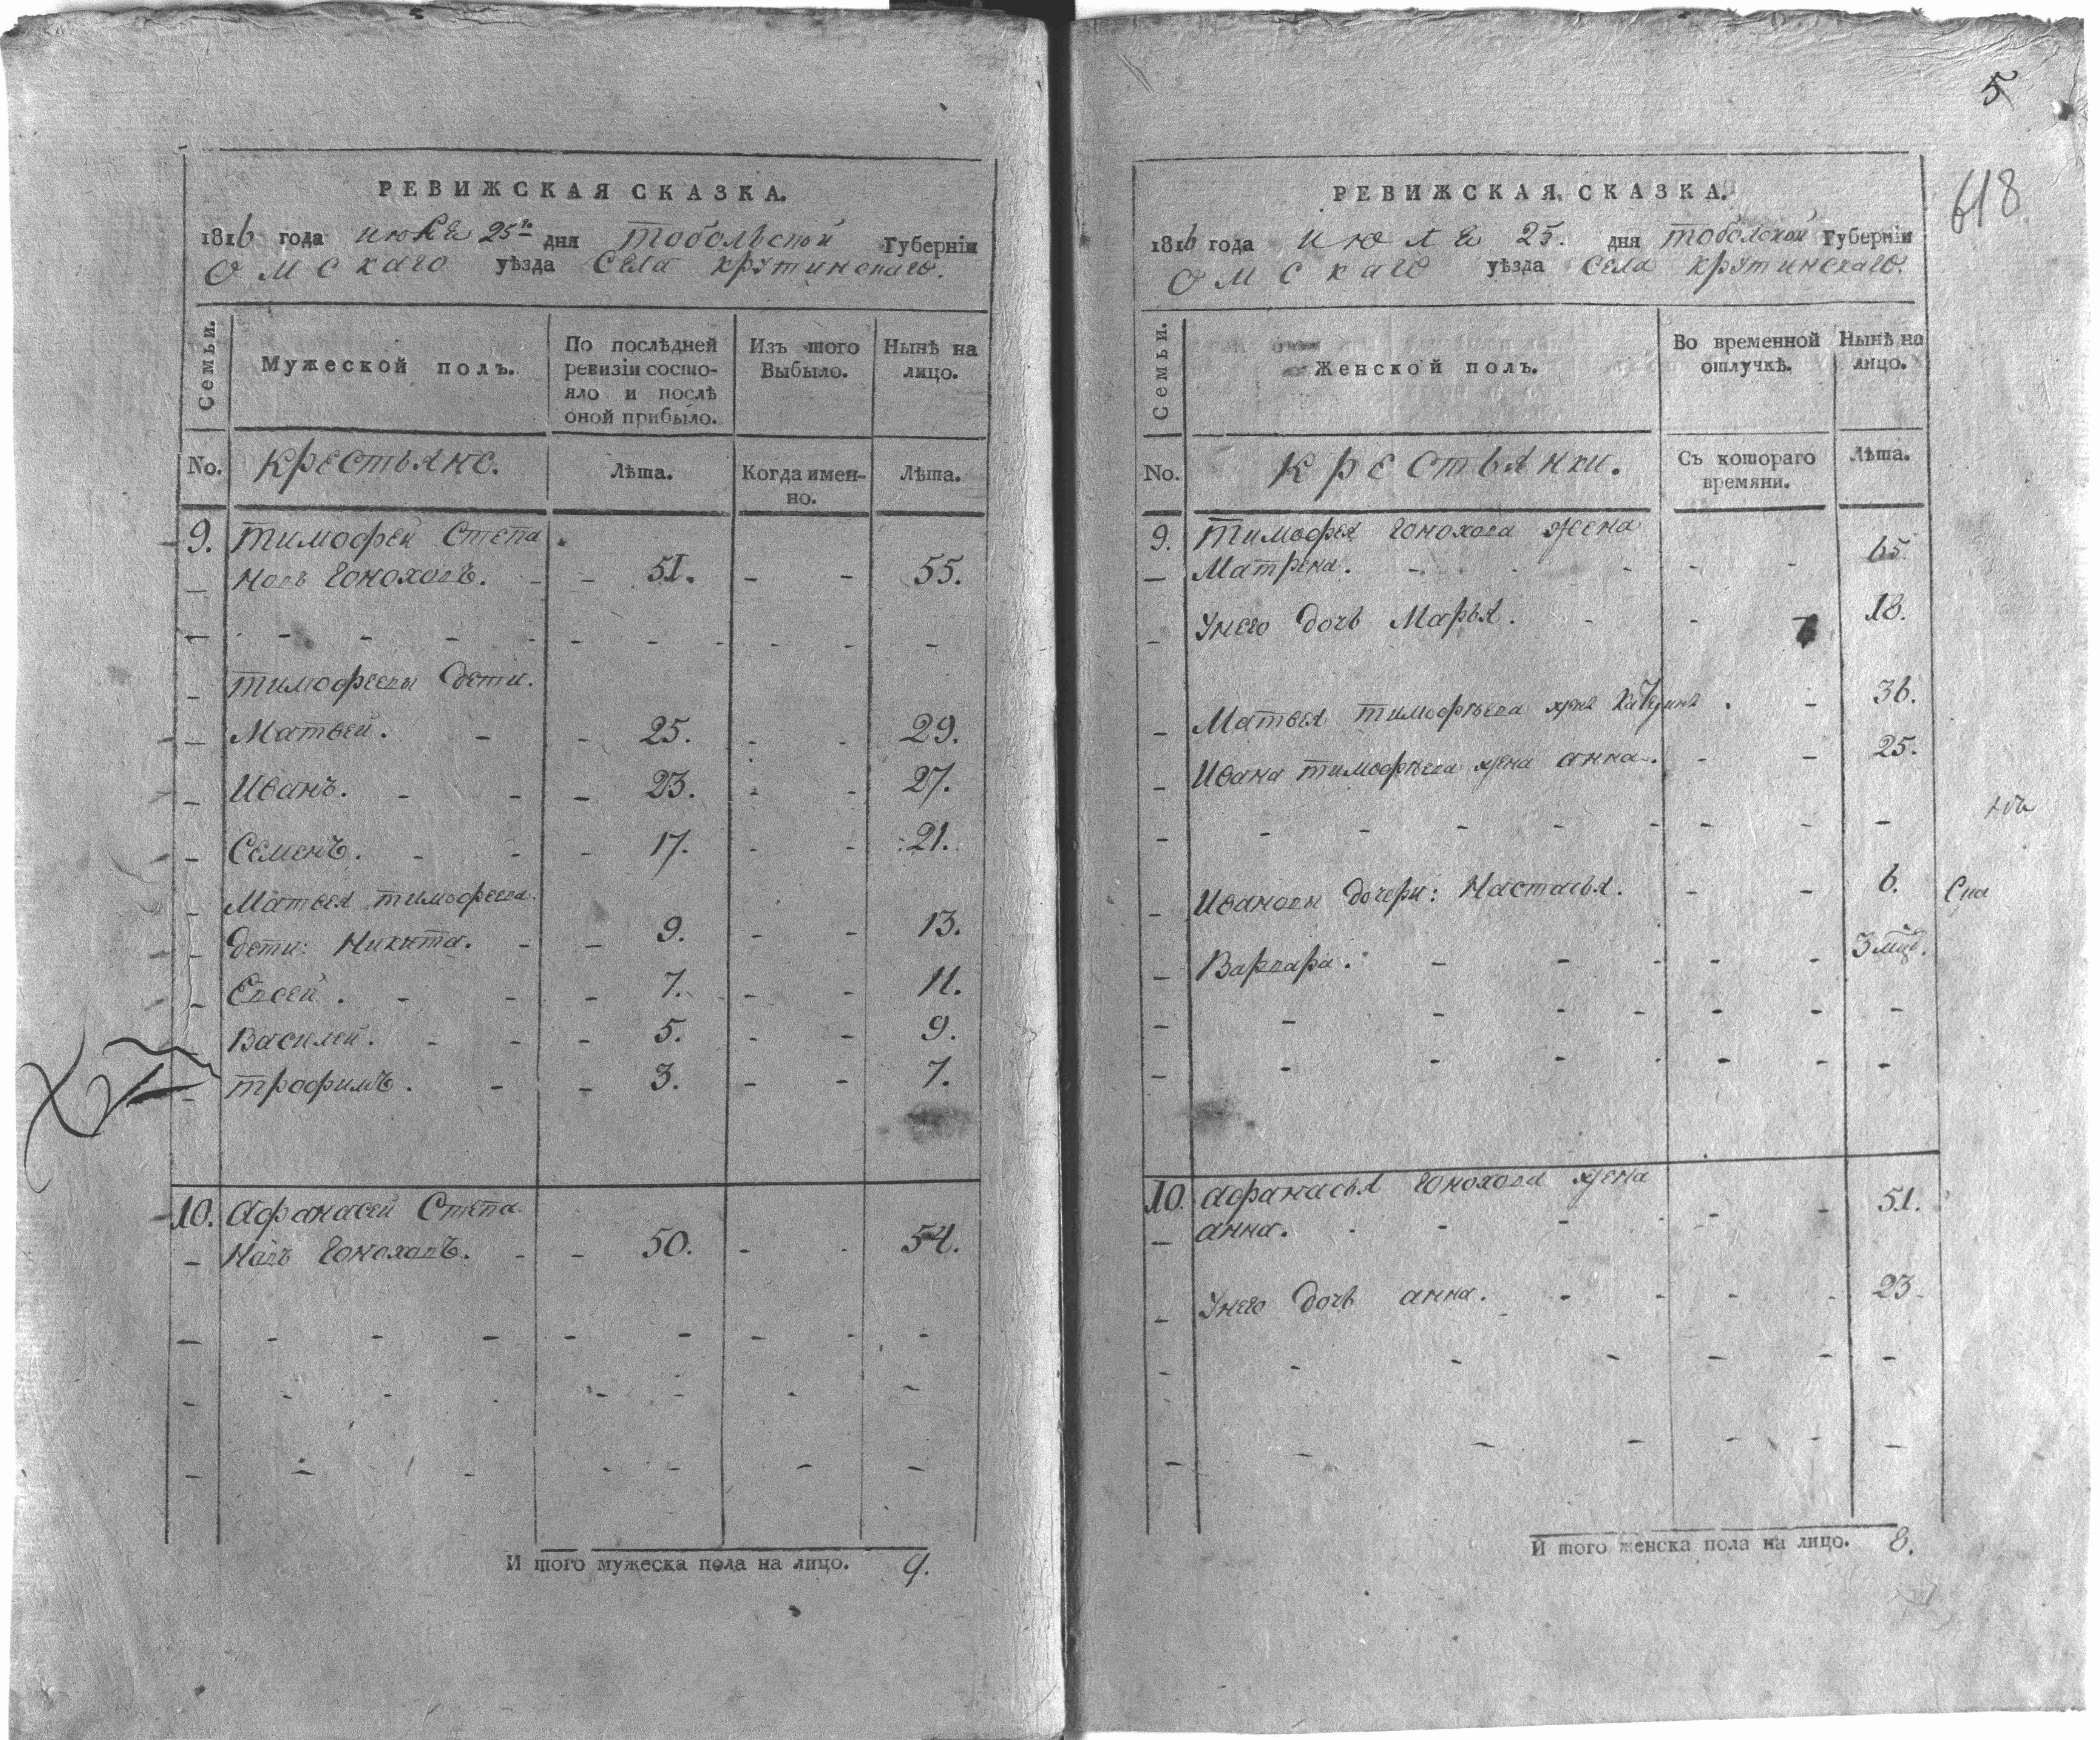 РЕВИЖСКАЯ СКАЗКА.
1816 года июля 25го дня Тобольской Губерніи
Омскаго уѣзда Села Крутинскаго.
Семьи.
Мужеской полъ.
По послѣдней
ревизіи состо-
яло и послѣ
оной прибыло.
Изъ того
Выбыло.
Нынѣ на
лицо.
No.
Крестьяне.
Лѣта.
Когда имен-
но.
Лѣта.
9. Тимофей Степа
новъ Гоноховъ. - - 51. - - 55.
Тимофеевы дети.
Матвей. - - 25. - - 29.
Иванъ. - - - 23. - - 27.
Семенъ. - - - 17. - - 21.
Матвея Тимофеева
дети: Никита. - - 9. - - 13.
Евсей. - - - 7. - - 11.
Василей. - - - 5. - - 9.
Трофимъ. - - 3. - - 7.
10. Афанасей Степа
новъ Гоноховъ. - - 50. - - 54.
И того мужеска пола на лицо. 9.
5
618
РЕВИЖСКАЯ СКАЗКА.
1816 года июля 25. дня Тоболской Губерніи
Омскаго уѣзда Села Крутинскаго.
Семьи.
Женской полъ.
Во временной
отлучкѣ.
Нынѣ на
лицо.
No.
Крестьянки.
Съ котораго
времяни.
Лѣта.
9. Тимофея Гонохова жена
Матрена. - - - - - 65.
Унего дочь Марья. - - - 18.
Матвея Тимофѣева жена Катерина . - 36.
Ивана Тимофѣева жена анна. - - 25.
Ивановы дочери: Настасья. - - 6.
Варвара. - - - - - 3 мѣс.
10. Афанасья Гонохова жена
анна. - - - - - - 51.
Унего дочь анна. - - - - 23
И того женска пола на лицо. 8.